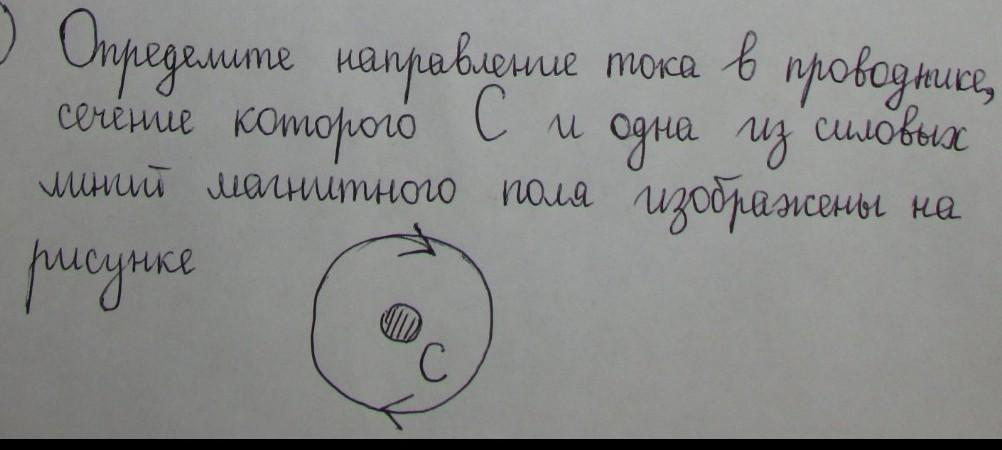 ) Определите направление тока в проводнике,
сечение которого С и одна из силовых
линий магнитного поля изображены на
рисунке
С